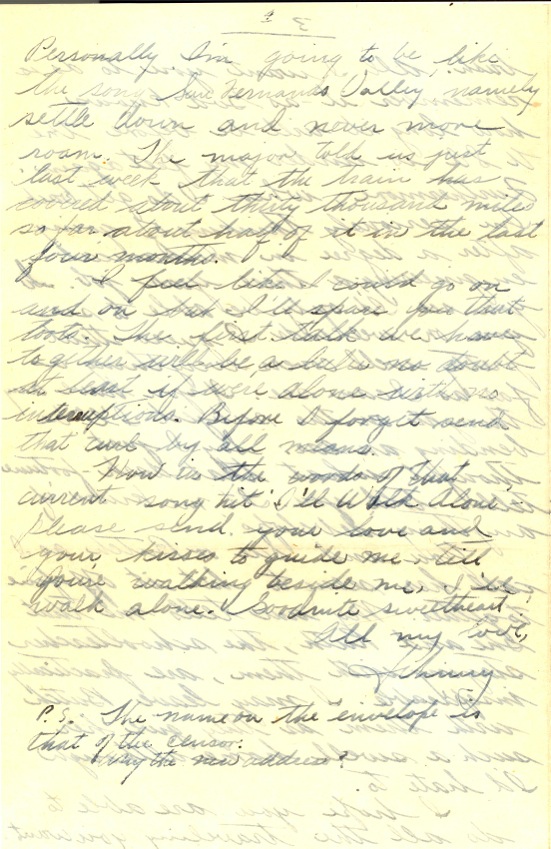 3
Personally I'm going to be, like
the song San Fernando Valley, namely
settle down and never more
roam. The major told us just
last week that the train has
covered about thirty thousand miles
so far about half of it in the last
four months.
I feel like I could go on
and on but I'll spare you that
The first talk we have
together will be a no doubt
at least if we're alone with no
interruptions. Before I forget send
that by all means.
Now in the words of that
current song hit "I'll Walk Alone",
please send your love and
your kisses to guide me till
you're walking beside me, I'll
walk alone. Goodnite sweetheart
All my love,
Johnny
P.S. The name on the envelope is
that of the censor.
the new address?